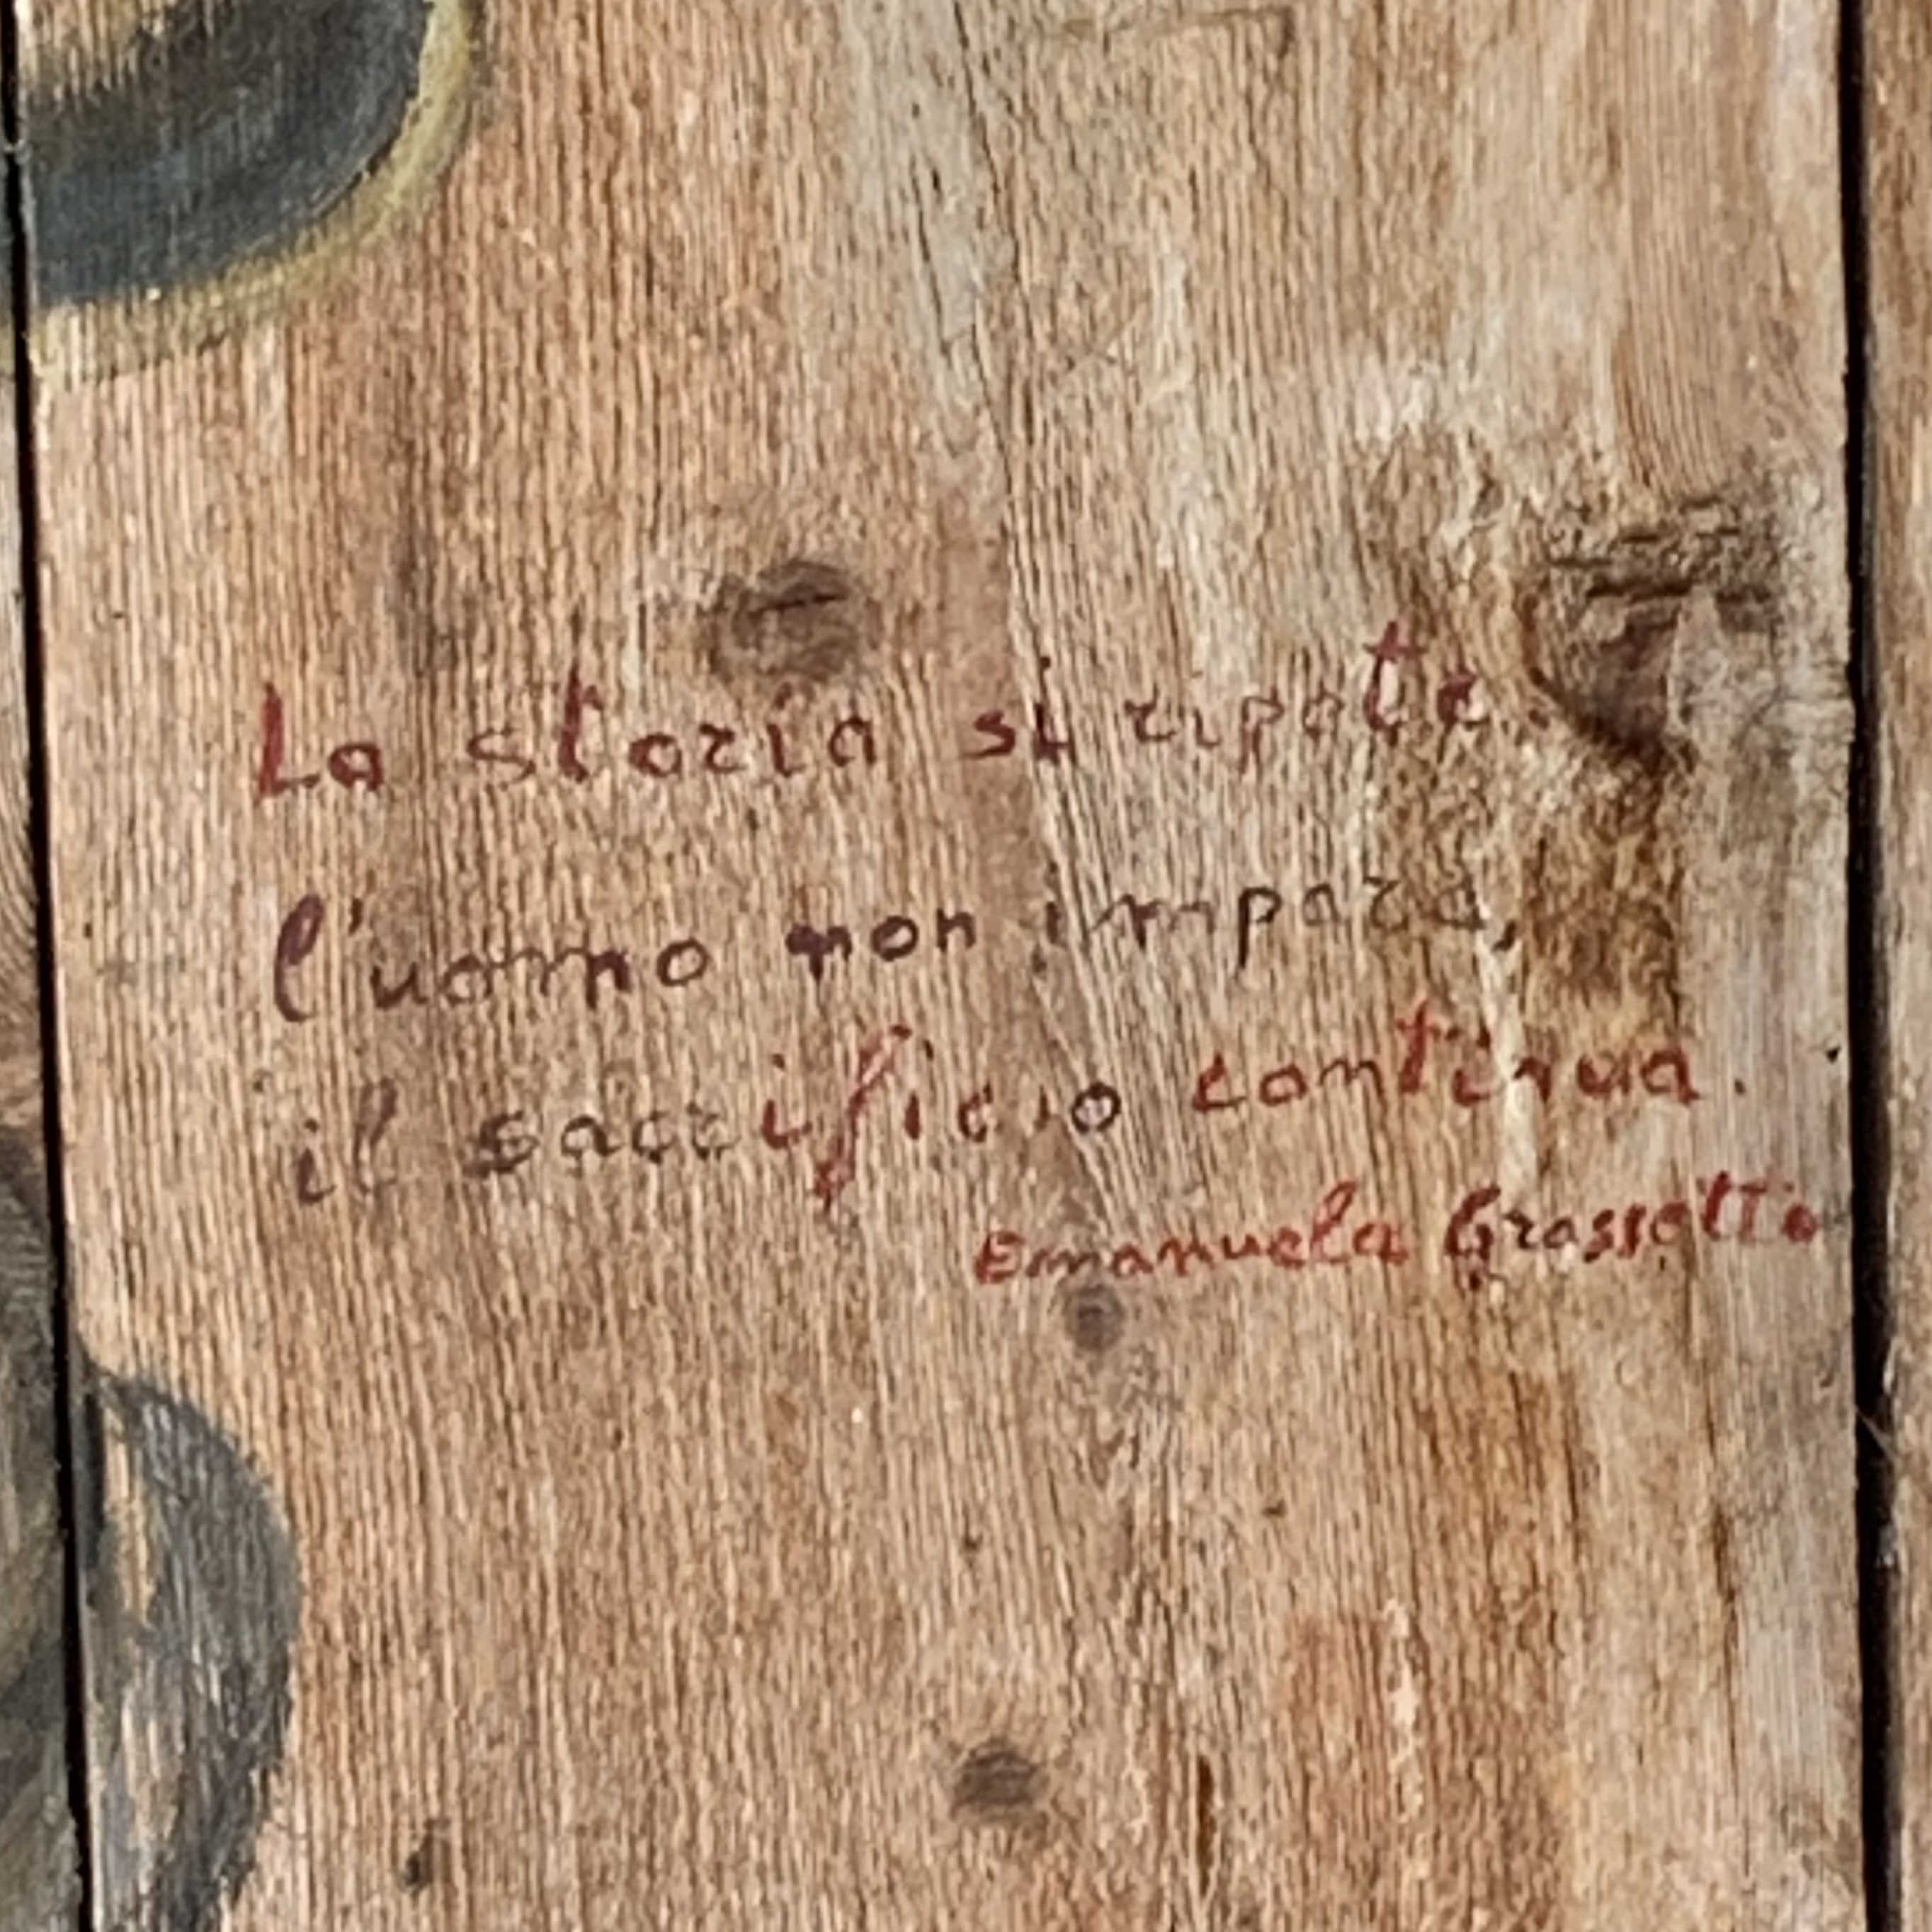 La storia si ripete.
l'uomo non impara,
il sacrificio continua.
Emanuela Grassetti